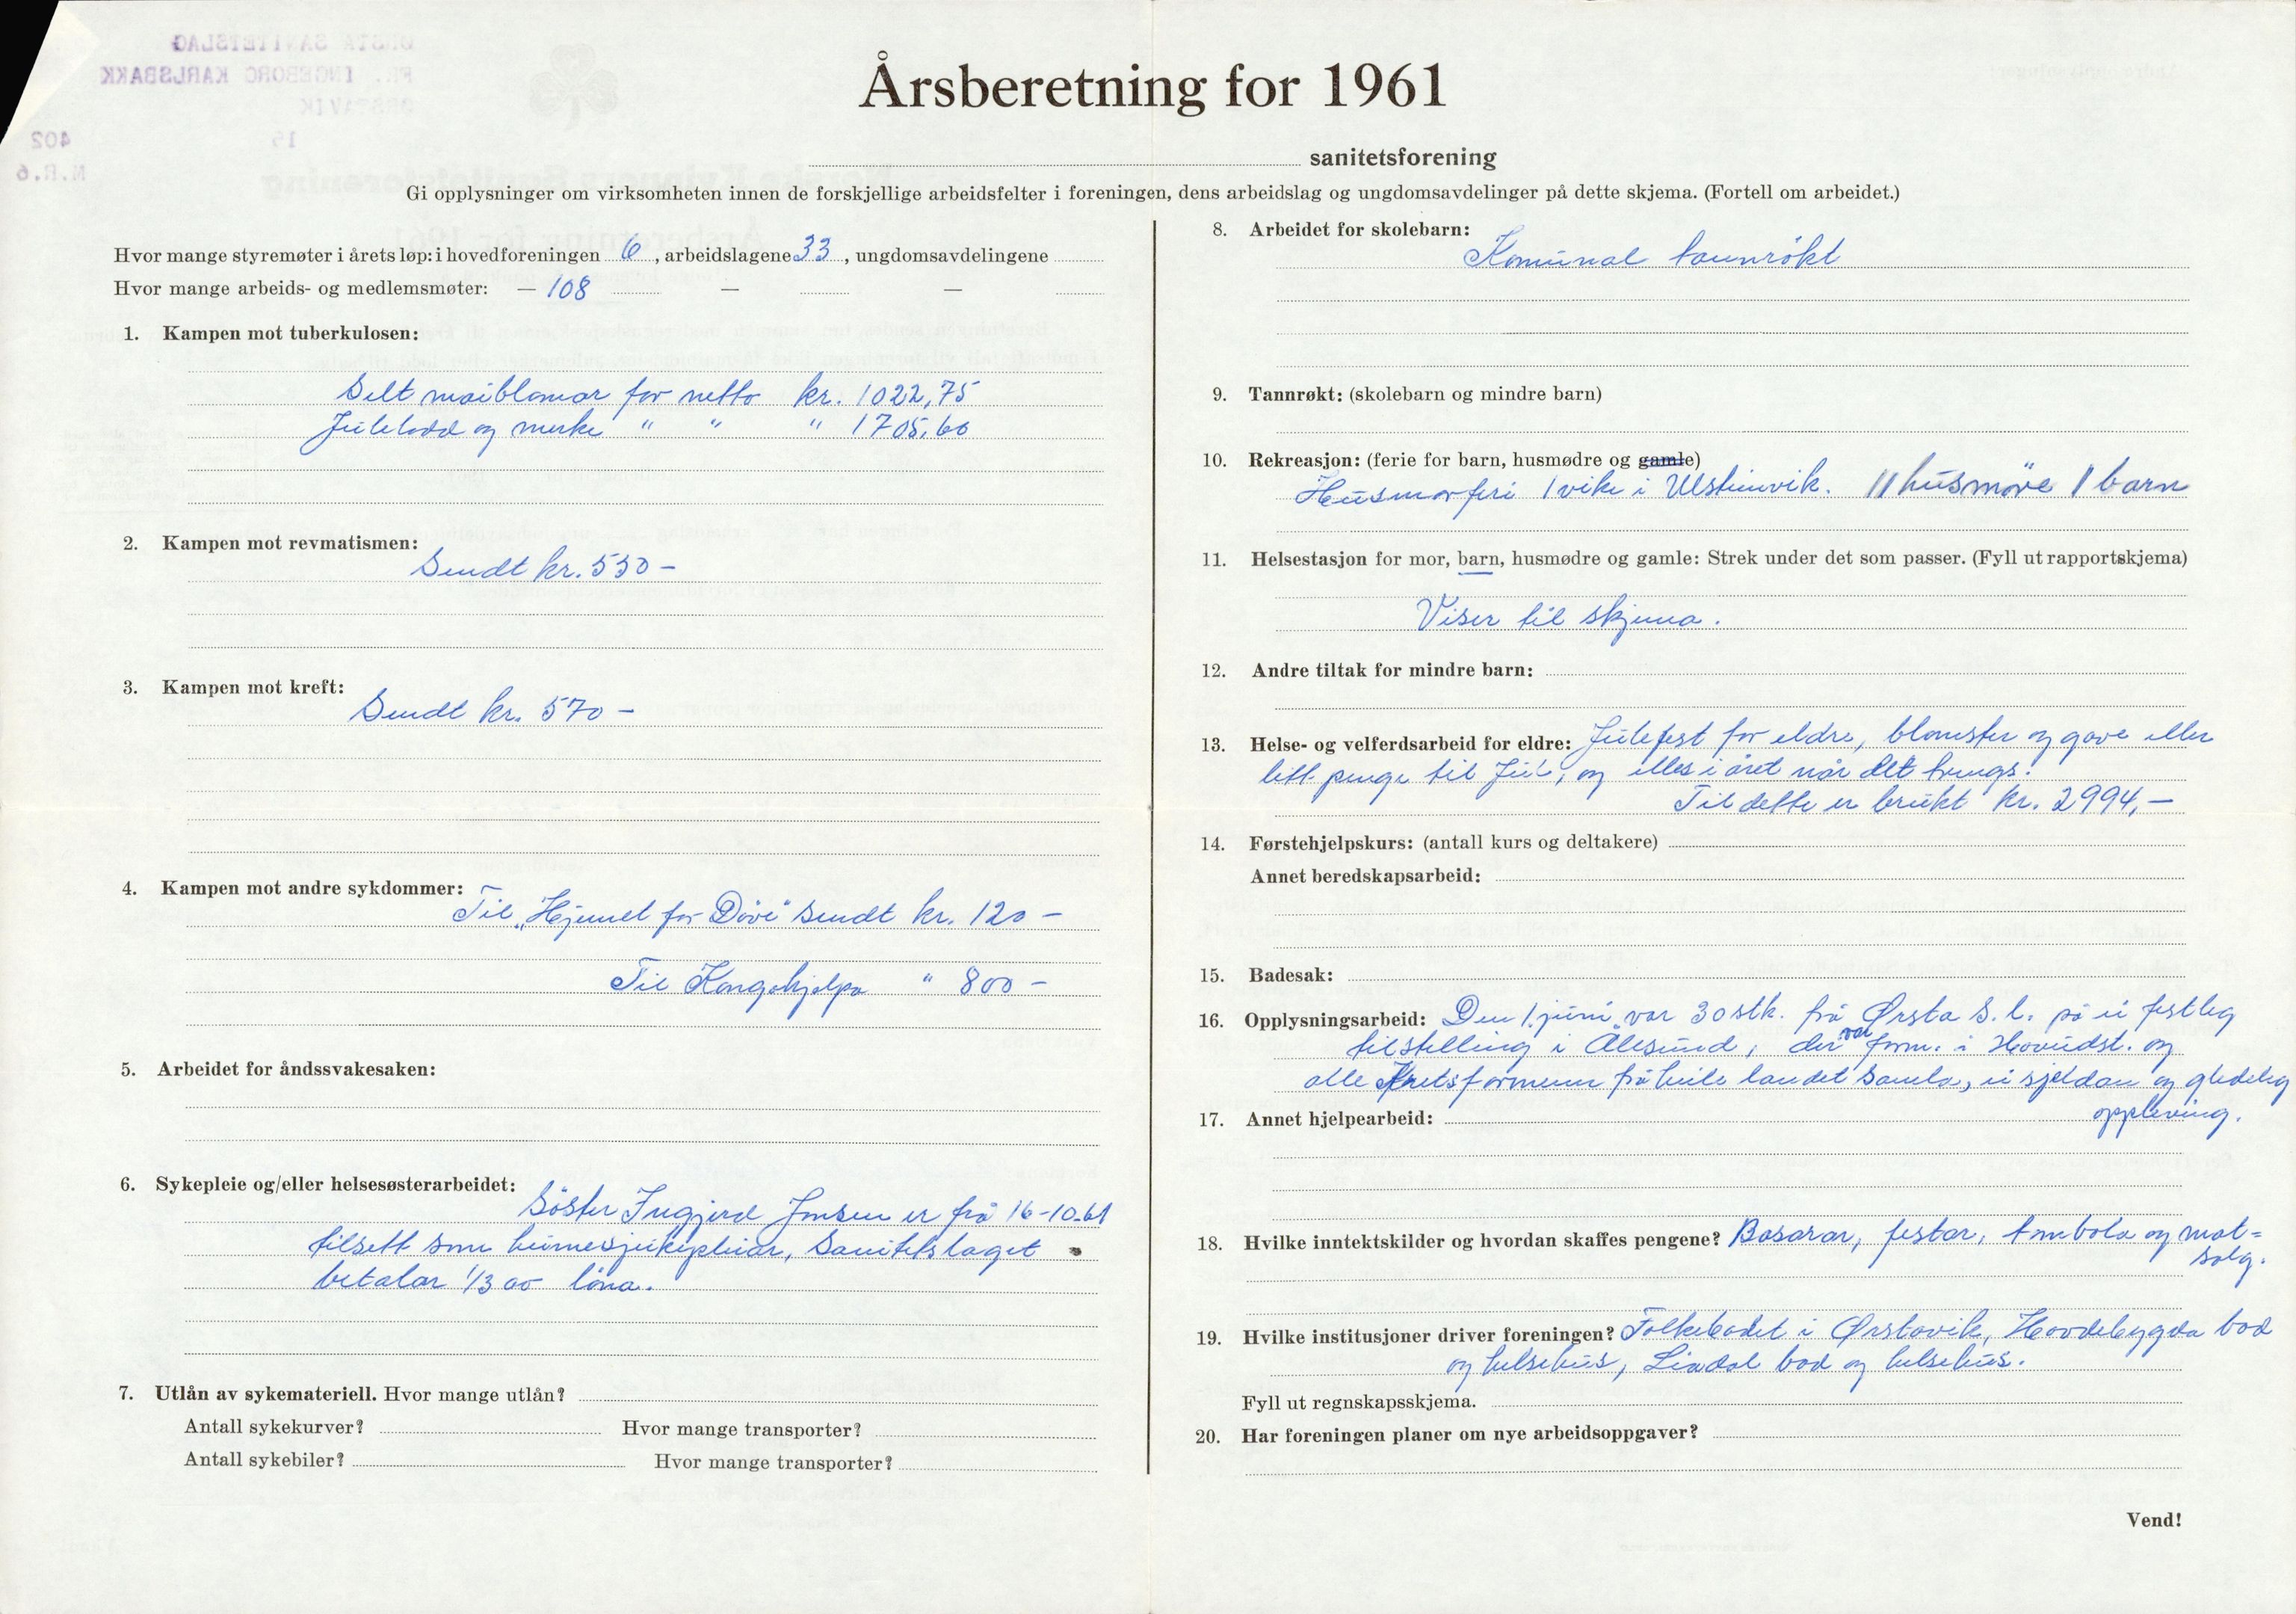 Årsberetning for 1961
sanitetsforening
Gi opplysninger om virksomheten innen de forskjellige arbeidsfelter i foreningen, dens arbeidslag og ungdomsavdelinger på dette skjema. (Fortell om arbeidet.)
Hvor mange styremøter i årets løp: i hovedforeningen 6, arbeidslagene 33, ungdomsavdelingene
Hvor mange arbeids- og medlemsmøter: — 108 — —
1. Kampen mot tuberkulosen:
Selt maiblomar for netto kr. 1022,75
Julelodd og merke " " " 1705,60
2. Kampen mot revmatismen:
Sendt kr. 550 –
3. Kampen mot kreft:
Sendt kr. 570 –
4. Kampen mot andre sykdommer:
Til „Hjemmet for Døve" sendt kr. 120 –
Til Kongohjelpa " 800 –
5. Arbeidet for åndssvakesaken:
6. Sykepleie og/eller helsesøsterarbeidet:
Søster Ingjerd Jonsen er frå 16-10-61
tilsett som heimesjukepleiar, Sanitetslaget
betalar 1/3 av løna.
7. Utlån av sykemateriell. Hvor mange utlån?
Antall sykekurver? Hvor mange transporter?
Antall sykebiler? Hvor mange transporter?
8. Arbeidet for skolebarn:
Komunal tannrøkt
9. Tannrøkt: (skolebarn og mindre barn)
10. Rekreasjon: (ferie for barn, husmødre og gamle)
Husmorferi 1 vike i Ulsteinvik. 11 husmøre 1 barn
11. Helsestasjon for mor, barn, husmødre og gamle: Strek under det som passer. (Fyll ut rapportskjema)
Viser til skjema.
12. Andre tiltak for mindre barn:
13. Helse- og velferdsarbeid for eldre: Julefest for eldre, blomster og gave eller
litt penge til Jul, og elles i året når det trengs.
Til dette er brukt kr. 2994,—
14. Førstehjelpskurs: (antall kurs og deltakere)
Annet beredskapsarbeid:
15. Badesak:
16. Opplysningsarbeid: Den 1. juni var 30 stk. frå Ørsta S.l. på ei festleg
tilstelling i Ålesund, der var form. i Hovudst. og
alle Kretsformenn frå heile landet samla, ei sjeldan og gledeleg
oppleving.
17. Annet hjelpearbeid:
18. Hvilke inntektskilder og hvordan skaffes pengene? Basarar, festar, tombola og mat=
salg.
19. Hvilke institusjoner driver foreningen? Folkebadet i Ørstavik, Hovdebygda bad
og helsehus, Liadal bad og helsehus.
Fyll ut regnskapsskjema.
20. Har foreningen planer om nye arbeidsoppgaver?
Vend!